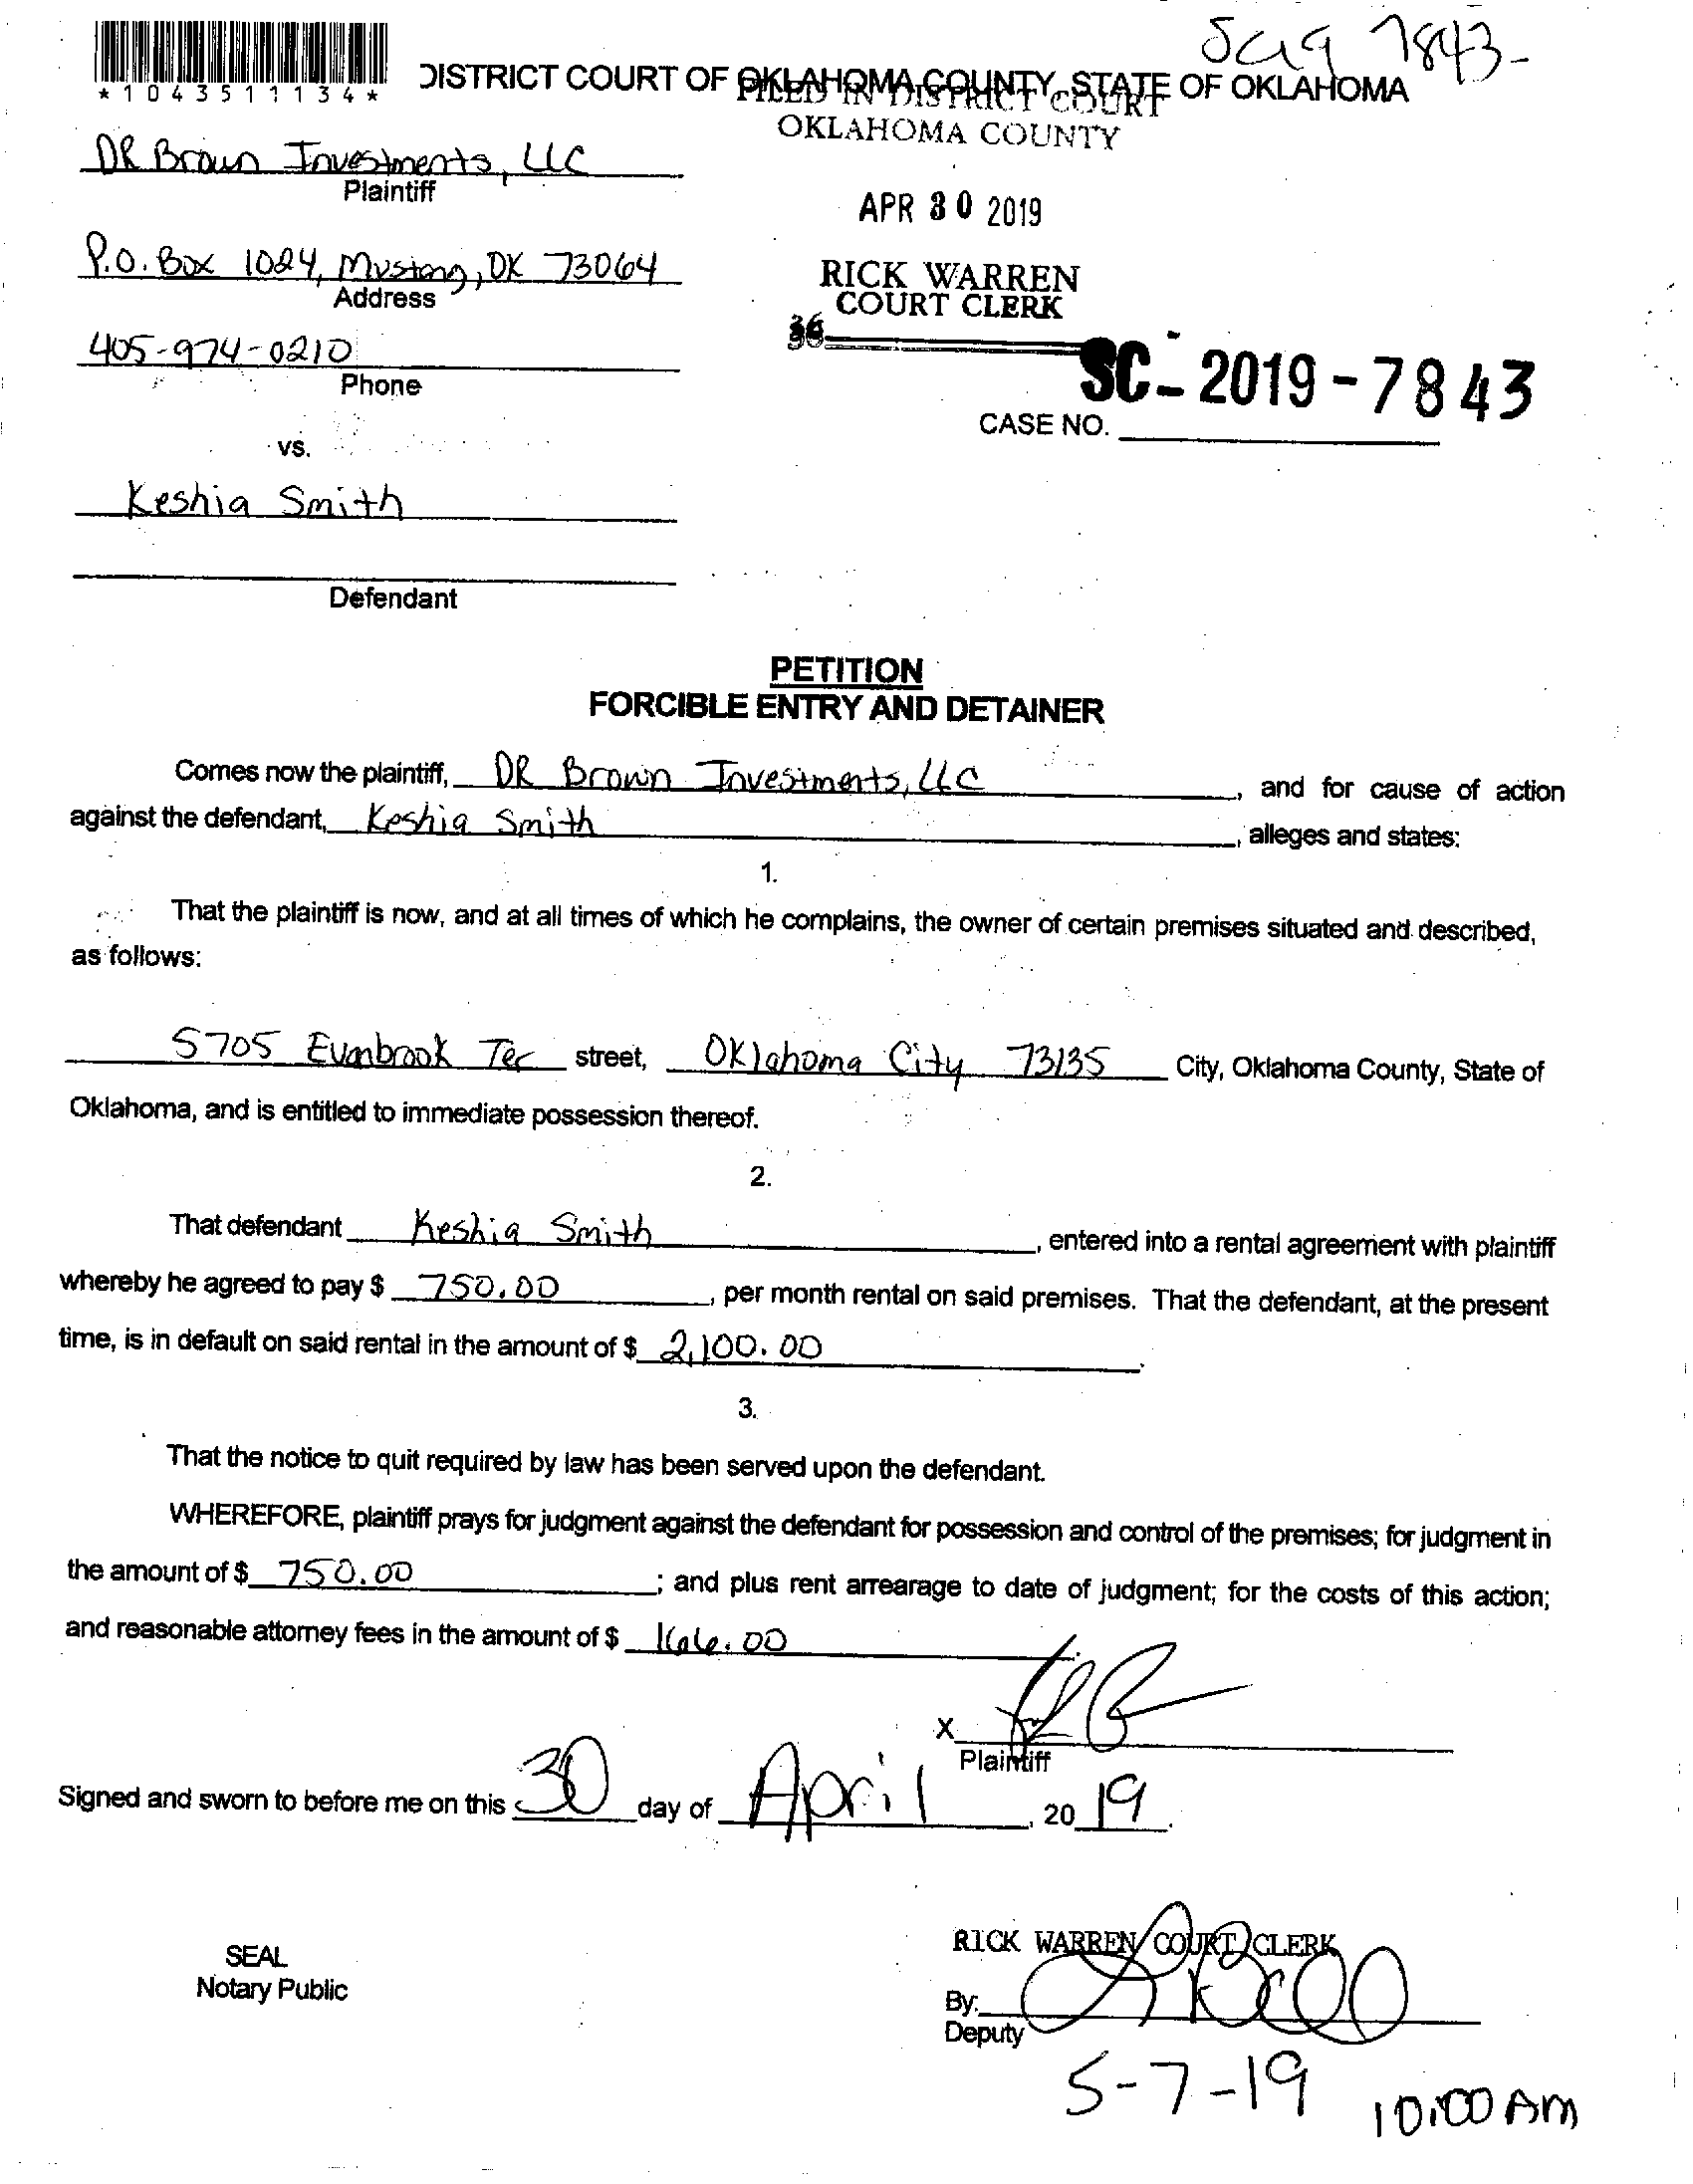 SC19 7843-
*1043511134*
DISTRICT COURT OF OKLAHOMA COUNTY, STATE OF OKLAHOMA
FILED IN DISTRICT COURT
OKLAHOMA COUNTY
DR Brown Investments, LLC
Plaintiff
APR 30 2019
P.O. Box 1024, Mustang, OK 73064
Address
RICK WARREN
COURT CLERK
36
405-974-0210
Phone
SC- 2019-7843
CASE NO.
vs.
Keshia Smith
Defendant
PETITION
FORCIBLE ENTRY AND DETAINER
Comes now the plaintiff, DR Brown Investments, LLC, and for cause of action
against the defendant, Keshia Smith, alleges and states:
1.
That the plaintiff is now, and at all times of which he complains, the owner of certain premises situated and described,
as follows:
5705 Evanbrook Ter street, Oklahoma City 73135 City, Oklahoma County, State of
Oklahoma, and is entitled to immediate possession thereof.
2.
That defendant Keshia Smith, entered into a rental agreement with plaintiff
whereby he agreed to pay $ 750.00, per month rental on said premises. That the defendant, at the present
time, is in default on said rental in the amount of $ 2,100.00.
3.
That the notice to quit required by law has been served upon the defendant.
WHEREFORE, plaintiff prays for judgment against the defendant for possession and control of the premises; for judgment in
the amount of $ 750.00; and plus rent arrearage to date of judgment; for the costs of this action;
and reasonable attorney fees in the amount of $ 166.00.
X
Plaintiff
Signed and sworn to before me on this 30 day of April, 2019.
SEAL
Notary Public
RICK WARREN COURT CLERK
By:
Deputy
5-7-19 10:00 AM